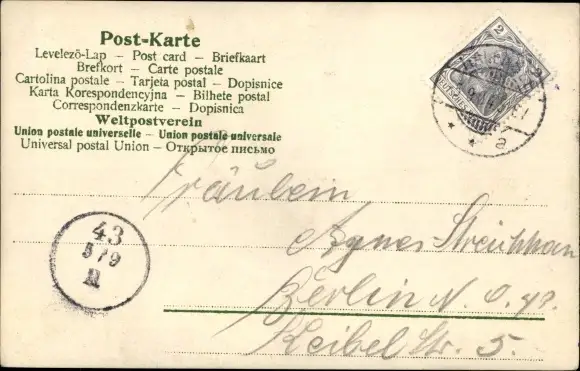 Post-Karte
Levelezö-Lap – Post card – Briefkaart
Brefkort – Carte postale
Cartolina postale – Tarjeta postal – Dopisnice
Karta Korespondencyjna – Bilhete postal
Correspondenzkarte – Dopisnica
Weltpostverein
Union postale universelle – Union postale universale
Universal postal Union – Открытое письмо
2
a
43
5/9
R
Fräulein
Agnes
Berlin N. O.
Keibel Str. 5.